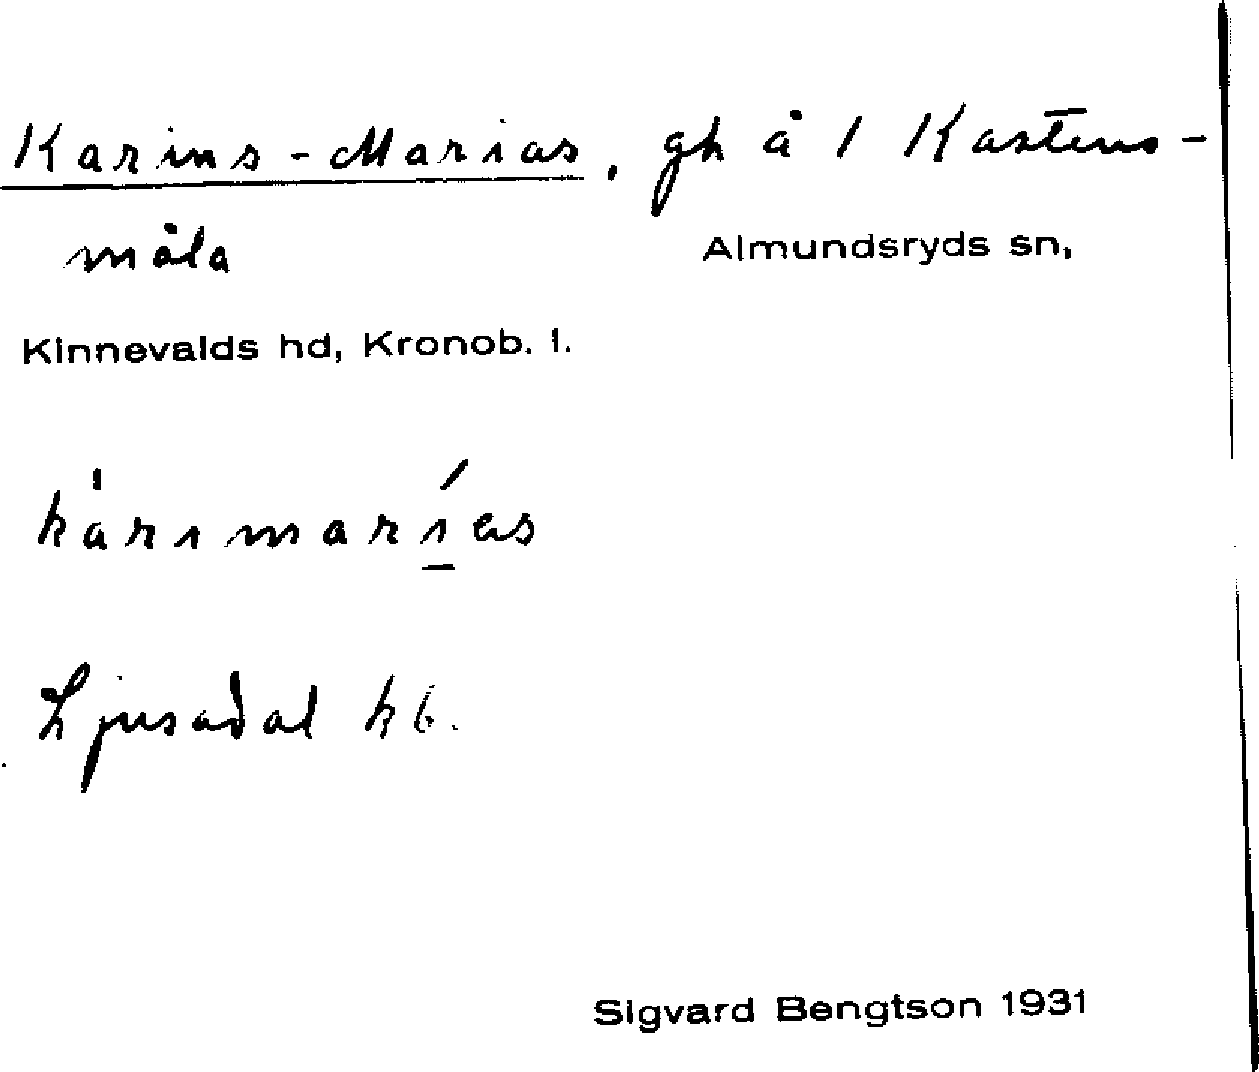 Karins-Marias, gh å 1 Kastens-
måla Almundsryds sn,
Kinnevalds hd, Kronob. l.
kàrımarı́as
Ljusadal kb.
Sigvard Bengtson 1931